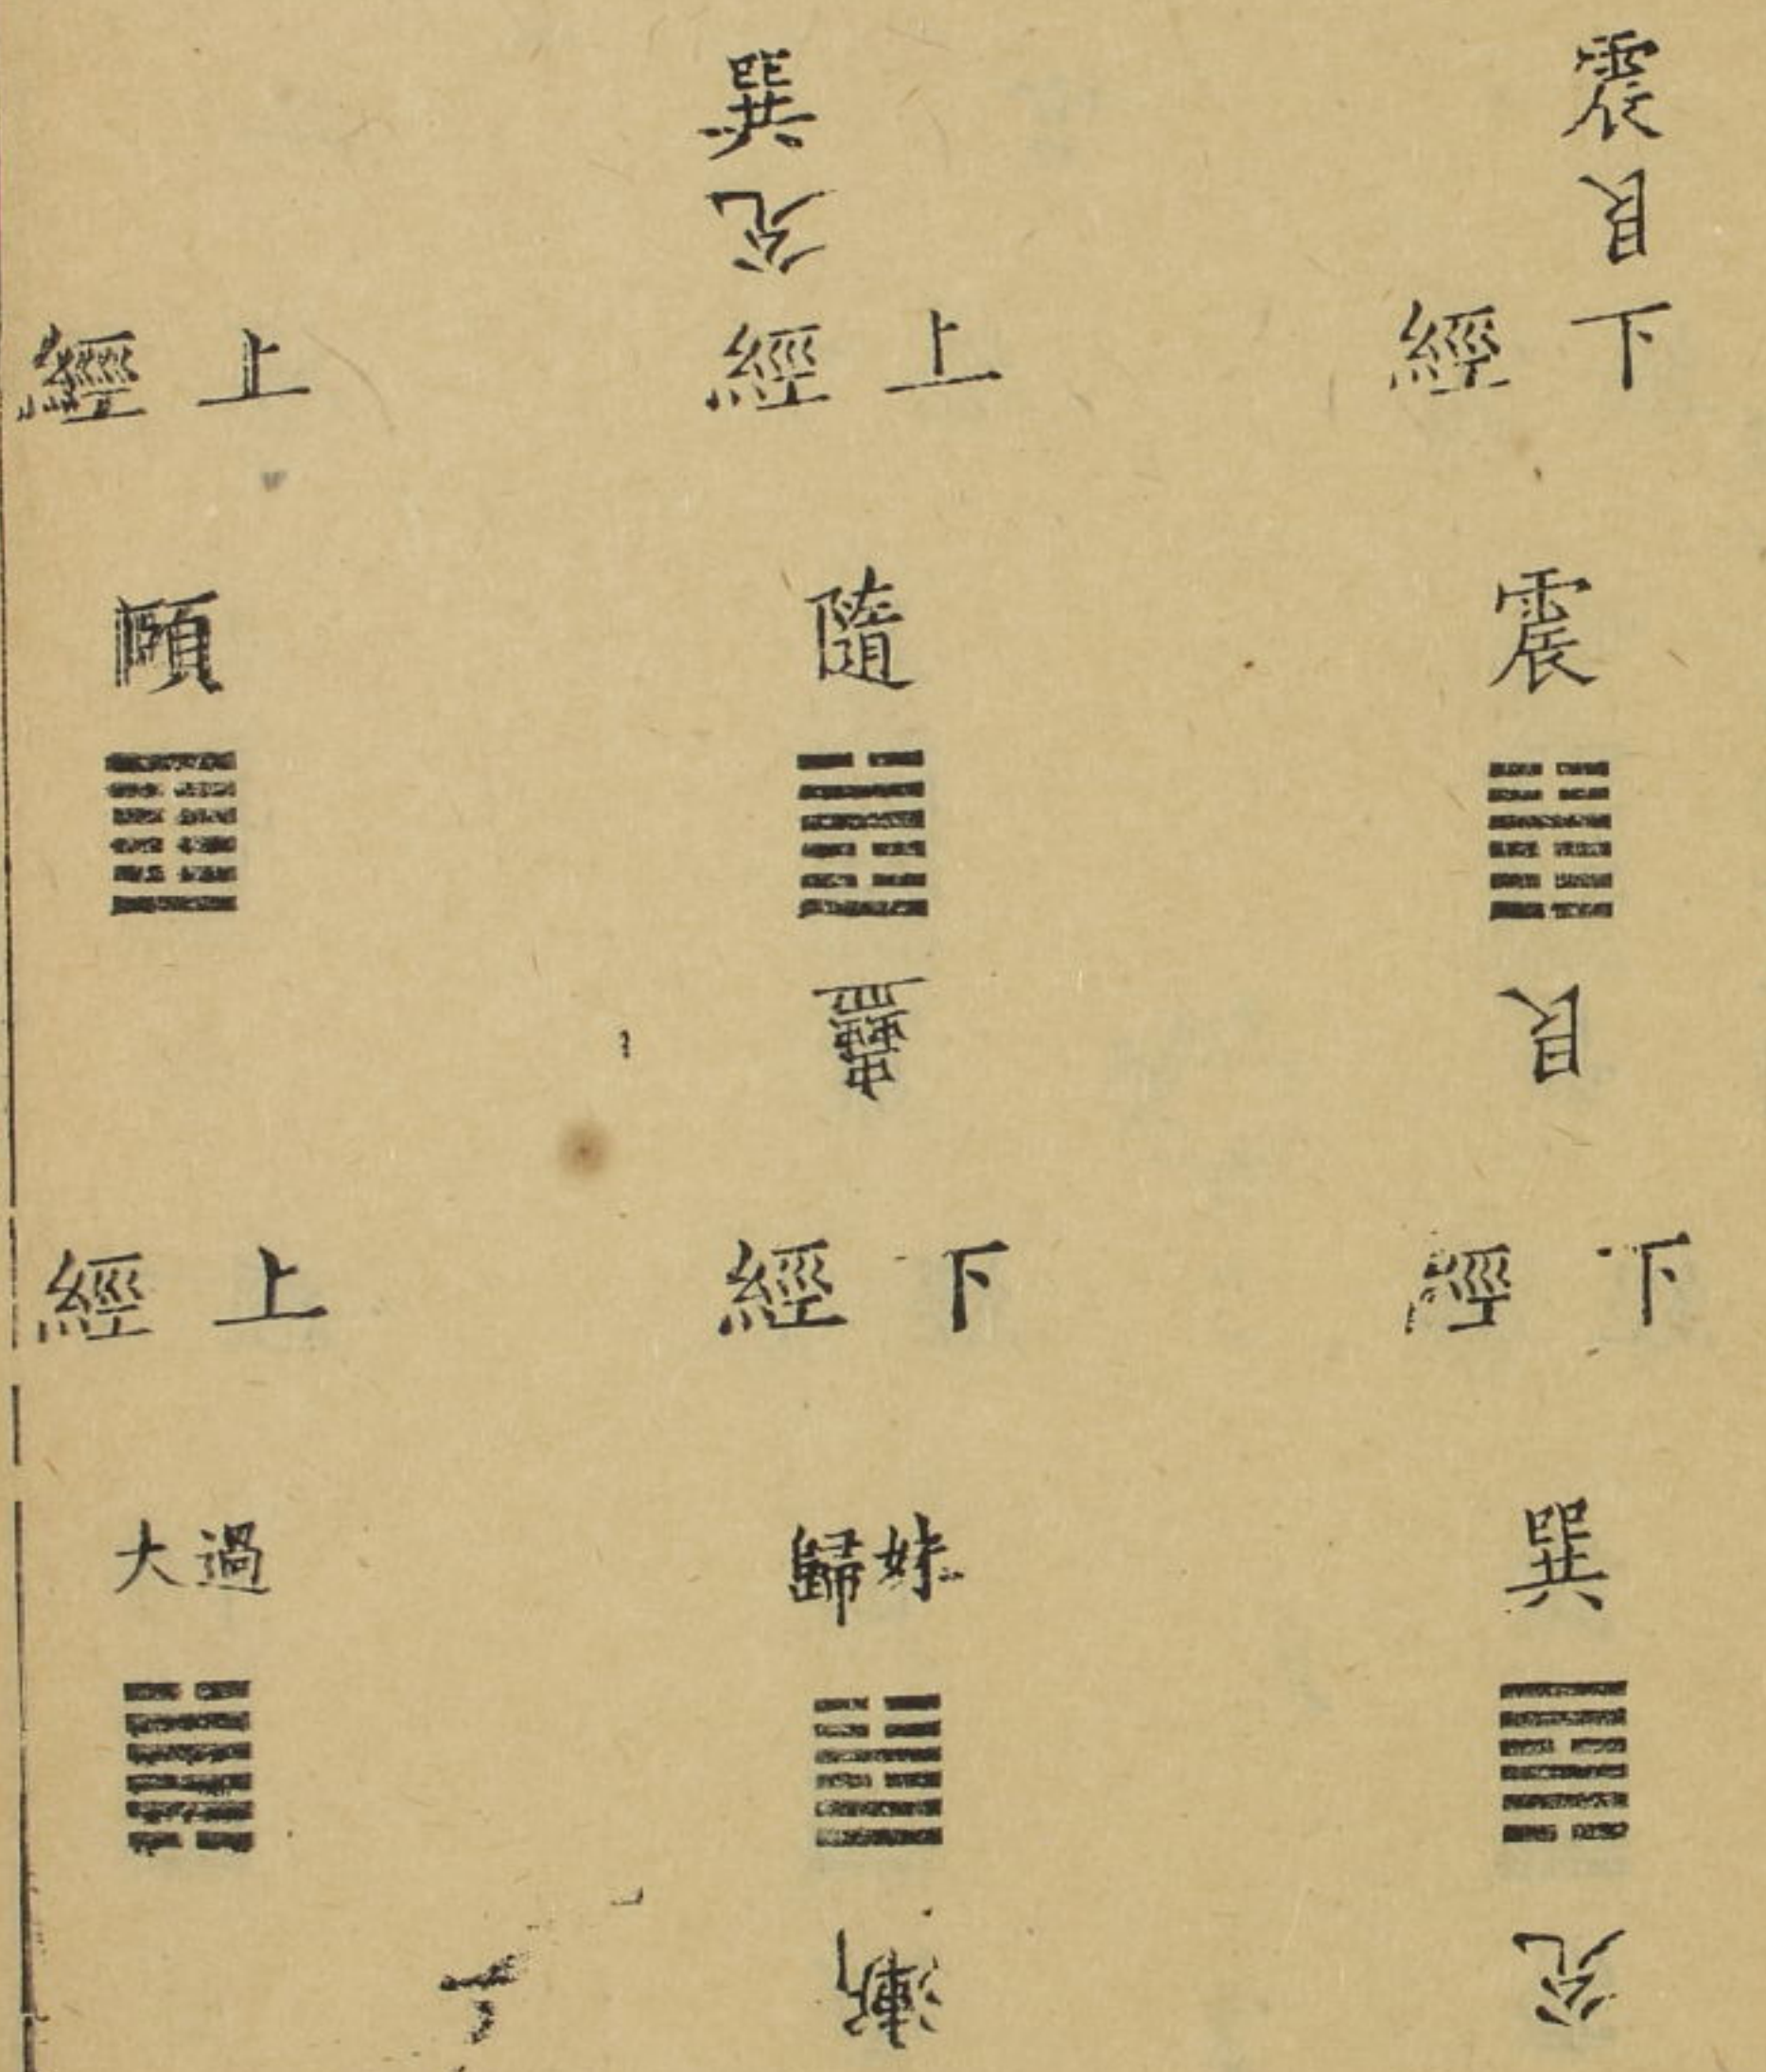 震艮
下經
震
艮
下經
巽
兌
巽兌
上經
隨
蠱
下經
歸妹
漸
上經
頤
上經
大過